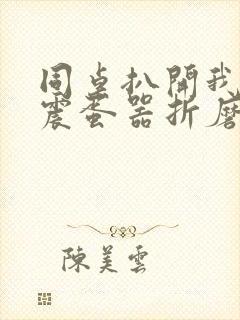 同桌扒開我
震蛋器折磨
陳美雲